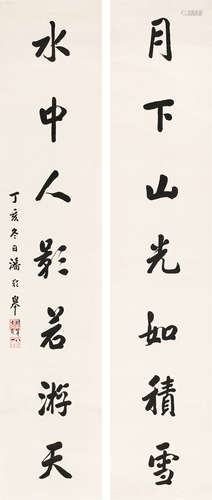 月下山光如積雪
水中人影若游天
丁亥冬日潘齡皋